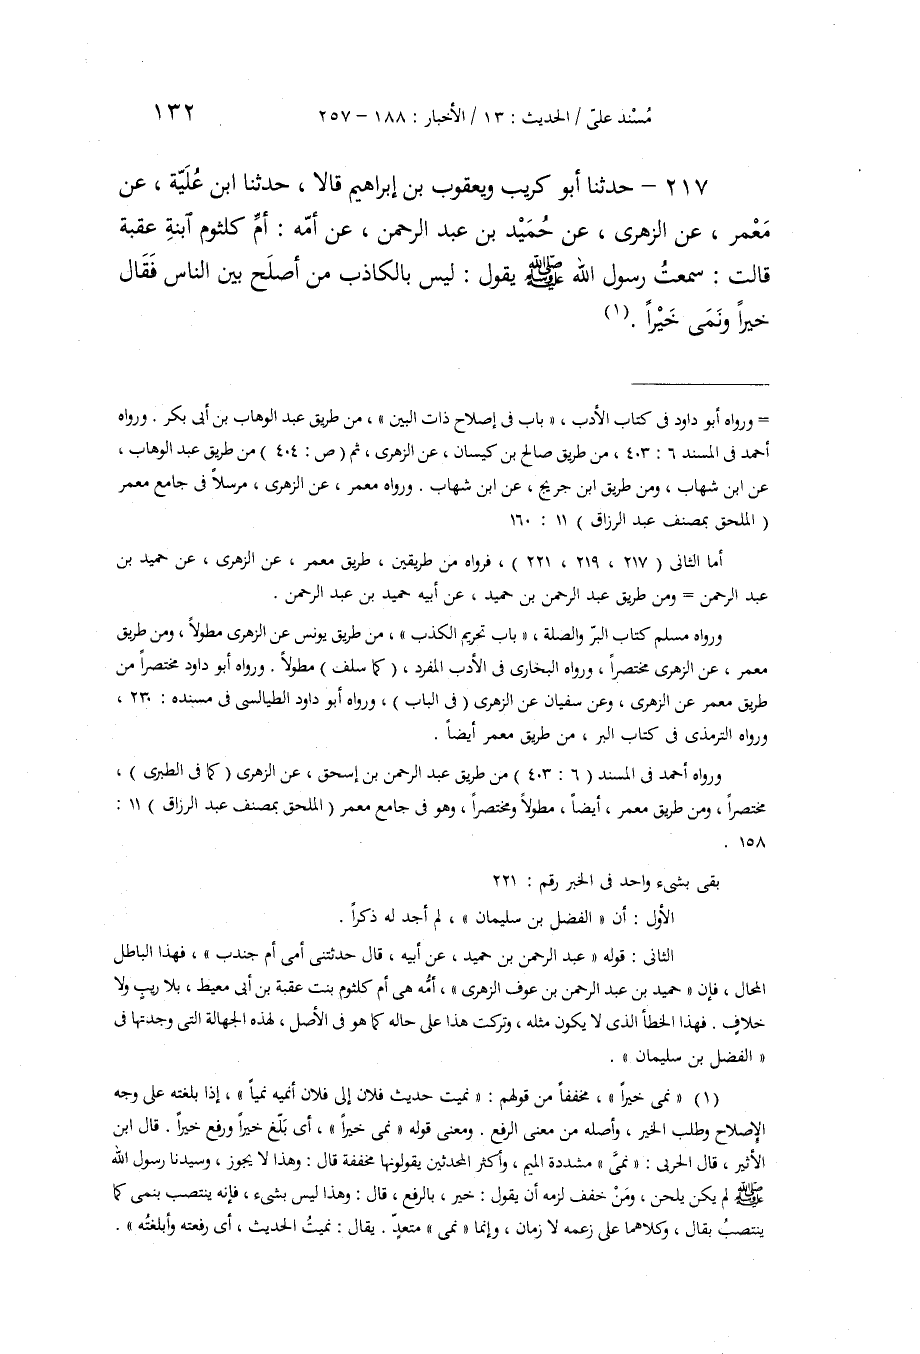 مُسْند علىّ / الحديث : ١٣ / الأخبار : ١٨٨ – ٢٥٧ ١٣٢
٢١٧ – حدثنا أبو كريب ويعقوب بن إبراهيم قالا ، حدثنا ابن عُلَيّة ، عن
مَعْمر ، عن الزهرى ، عن حُمَيْد بن عبد الرحمن ، عن أمّه : أمّ كلثوم ٱبنةِ عقبة
قالت : سمعتُ رسول الله ﷺ يقول : ليس بالكاذب من أصلَح بين الناس فَقَال
خيراً ونَمَى خَيْراً .(١)
= ورواه أبو داود فى كتاب الأدب ، « باب فى إصلاح ذات البين » ، من طريق عبد الوهاب بن أبى بكر . ورواه
أحمد فى المسند ٦ : ٤٠٣ ، من طريق صالح بن كيسان ، عن الزهرى ، ثم ( ص : ٤٠٤ ) من طريق عبد الوهاب ،
عن ابن شهاب ، ومن طريق ابن جريج ، عن ابن شهاب . ورواه معمر ، عن الزهرى ، مرسلاً فى جامع معمر
( الملحق بمصنف عبد الرزاق ) ١١ : ١٦٠
أما الثانى ( ٢١٧ ، ٢١٩ ، ٢٢١ ) ، فرواه من طريقين ، طريق معمر ، عن الزهرى ، عن حميد بن
عبد الرحمن = ومن طريق عبد الرحمن بن حميد ، عن أبيه حميد بن عبد الرحمن .
ورواه مسلم كتاب البرّ والصلة ، « باب تحريم الكذب » ، من طريق يونس عن الزهرى مطولاً ، ومن طريق
معمر ، عن الزهرى مختصراً ، ورواه البخارى فى الأدب المفرد ، ( كما سلف ) مطولاً . ورواه أبو داود مختصراً من
طريق معمر عن الزهرى ، وعن سفيان عن الزهرى ( فى الباب ) ، ورواه أبو داود الطيالسى فى مسنده : ٢٣٠ ،
ورواه الترمذى فى كتاب البر ، من طريق معمر أيضاً .
ورواه أحمد فى المسند ( ٦ : ٤٠٣ ) من طريق عبد الرحمن بن إسحق ، عن الزهرى ( كما فى الطبرى ) ،
مختصراً ، ومن طريق معمر ، أيضاً ، مطولاً ومختصراً ، وهو فى جامع معمر ( الملحق بمصنف عبد الرزاق ) ١١ :
١٥٨ .
بقى بشىء واحد فى الخبر رقم : ٢٢١
الأول : أن « الفضل بن سليمان » ، لم أجد له ذكراً .
الثانى : قوله « عبد الرحمن بن حميد ، عن أبيه ، قال حدثتنى أمى أم جندب » ، فهذا الباطل
المحال ، فإن « حميد بن عبد الرحمن بن عوف الزهرى » ، أمُّه هى أم كلثوم بنت عقبة بن أبى معيط ، بلا ريبٍ ولا
خلافٍ . فهذا الخطأ الذى لا يكون مثله ، وتركت هذا على حاله كما هو فى الأصل ، لهذه الجهالة التى وجدتها فى
« الفضل بن سليمان » .
(١) « نمى خيراً » ، مخففاً من قولهم : « نميت حديث فلان إلى فلان أنميه نمياً » ، إذا بلغته على وجه
الإصلاح وطلب الخير ، وأصله من معنى الرفع . ومعنى قوله « نمى خيراً » ، أى بَلّغ خيراً ورفع خيراً . قال ابن
الأثير ، قال الحربى : « نمىَّ » مشددة الميم ، وأكثر المحدثين يقولونها مخففة قال : وهذا لا يجوز ، وسيدنا رسول الله
ﷺ لم يكن يلحن ، ومَنْ خفف لزمه أن يقول : خير ، بالرفع ، قال : وهذا ليس بشىء ، فإنه ينتصب بنمى كما
ينتصبُ بقال ، وكلاهما على زعمه لا زمان ، وإنما « نمى » متعدٍّ . يقال : نميتُ الحديث ، أى رفعته وأبلغتُه » .